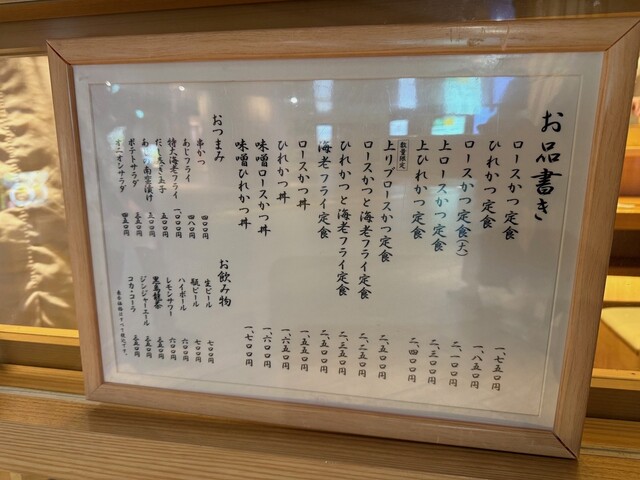 お品書き
ロースかつ定食 一、七五〇円
ひれかつ定食 一、八五〇円
ロースかつ定食(大) 二、一〇〇円
上ロースかつ定食 二、三〇〇円
上ひれかつ定食 二、四〇〇円
数量限定
上リブロースかつ定食 二、五〇〇円
ロースかつと海老フライ定食 二、五〇〇円
ひれかつと海老フライ定食 二、三五〇円
海老フライ定食 二、五〇〇円
ロースかつ丼 一、五五〇円
ひれかつ丼 一、六五〇円
味噌ロースかつ丼 一、六〇〇円
味噌ひれかつ丼 一、七〇〇円
おつまみ
串かつ 四〇〇円
あじフライ 四八〇円
特大海老フライ 一、〇〇〇円
だし巻き玉子 五〇〇円
南蛮漬け 三〇〇円
ポテトサラダ 三五〇円
オニオンサラダ 四五〇円
お飲み物
生ビール 七〇〇円
瓶ビール 七〇〇円
ハイボール 六〇〇円
レモンサワー 六〇〇円
黒烏龍茶 三五〇円
ジンジャーエール 三五〇円
コカ・コーラ 三五〇円
表示価格はすべて税込です。